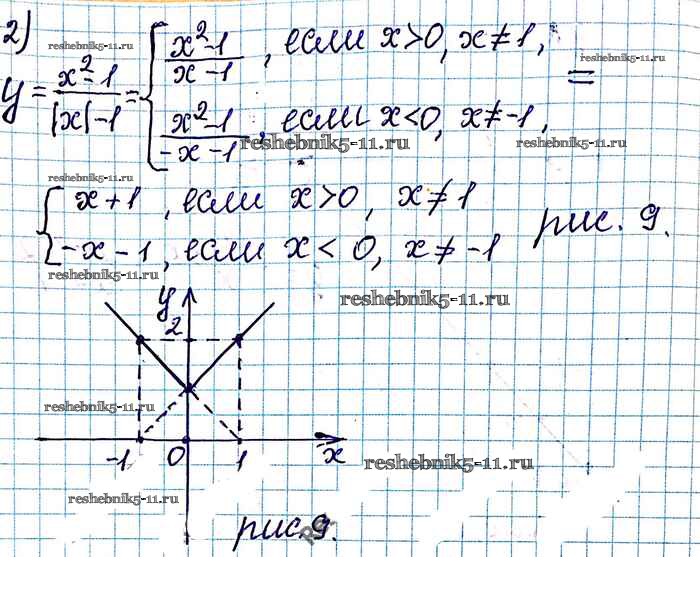 2)
reshebnik5-11.ru
y = x²-1 / |x|-1 = { x²-1 / x-1, если x>0, x≠1, =
x²-1 / -x-1, если x<0, x≠-1,
reshebnik5-11.ru
reshebnik5-11.ru
reshebnik5-11.ru
reshebnik5-11.ru
{ x+1, если x>0, x≠1
-x-1, если x<0, x≠-1
рис. 9.
reshebnik5-11.ru
reshebnik5-11.ru
y
2
reshebnik5-11.ru
-1 0 1 x
reshebnik5-11.ru
reshebnik5-11.ru
рис. 9.